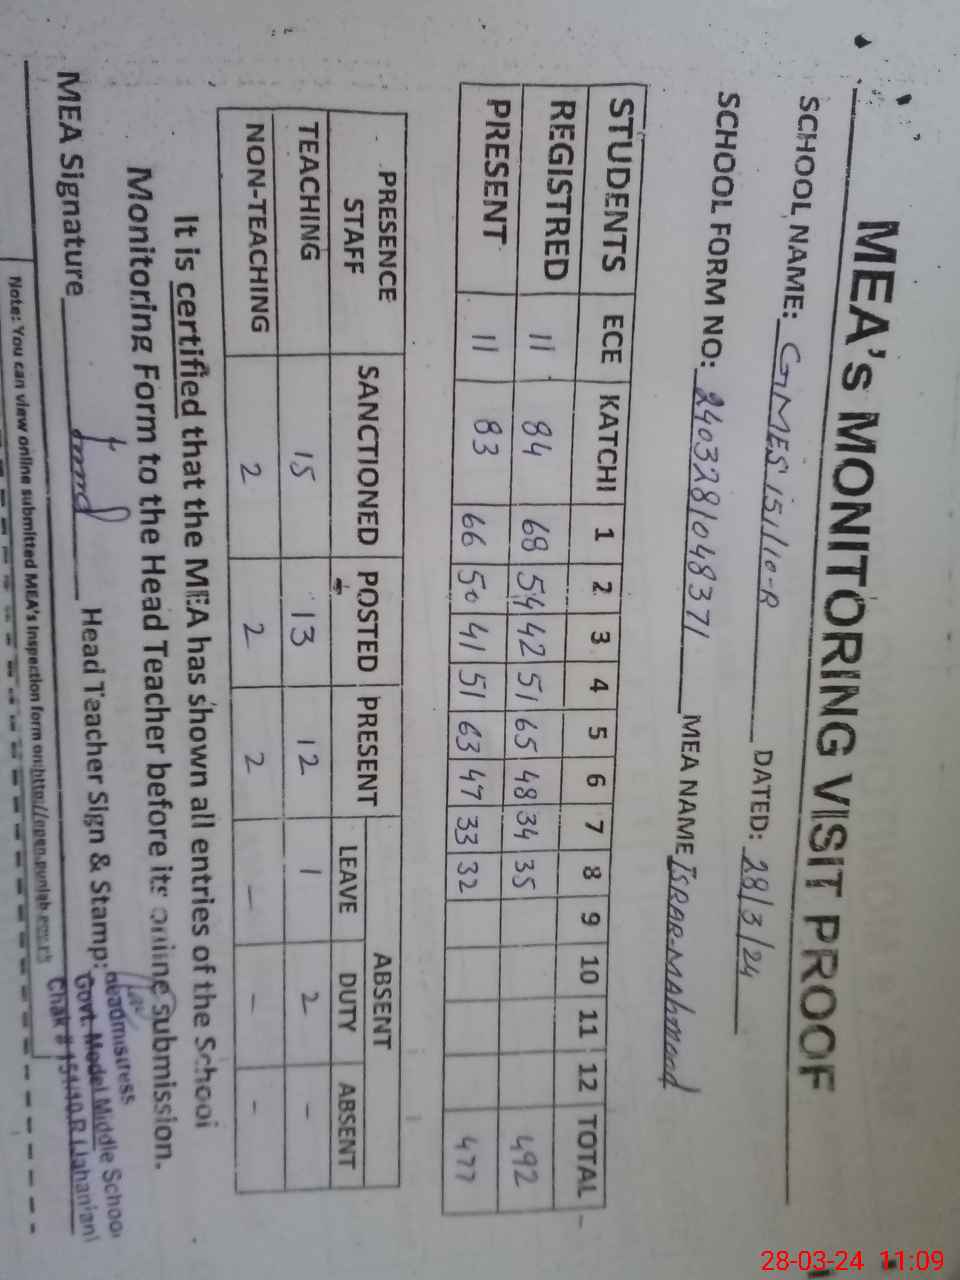 MEA's MONITORING VISIT PROOF
SCHOOL NAME: GMES 151/10-R DATED: 28/3/24
SCHOOL FORM NO: 2403281048371 MEA NAME ISRAR-MAHMOOD
STUDENTS ECE KATCHI 1 2 3 4 5 6 7 8 9 10 11 12 TOTAL
REGISTRED 11 84 68 54 42 51 65 48 34 35 492
PRESENT 11 83 66 50 41 51 63 47 33 32 477
PRESENCE STAFF SANCTIONED POSTED PRESENT ABSENT
LEAVE DUTY ABSENT
TEACHING 15 13 12 1 2 -
NON-TEACHING 2 2 2 - - -
It is certified that the MEA has shown all entries of the School
Monitoring Form to the Head Teacher before its online submission.
MEA Signature Head Teacher Sign & Stamp:
Headmistress
Govt. Model Middle School
Chak # 151/10.R (Jahanian)
Note: You can view online submitted MEA's Inspection form on:http://open.punjab.gov.pk
28-03-24 11:09